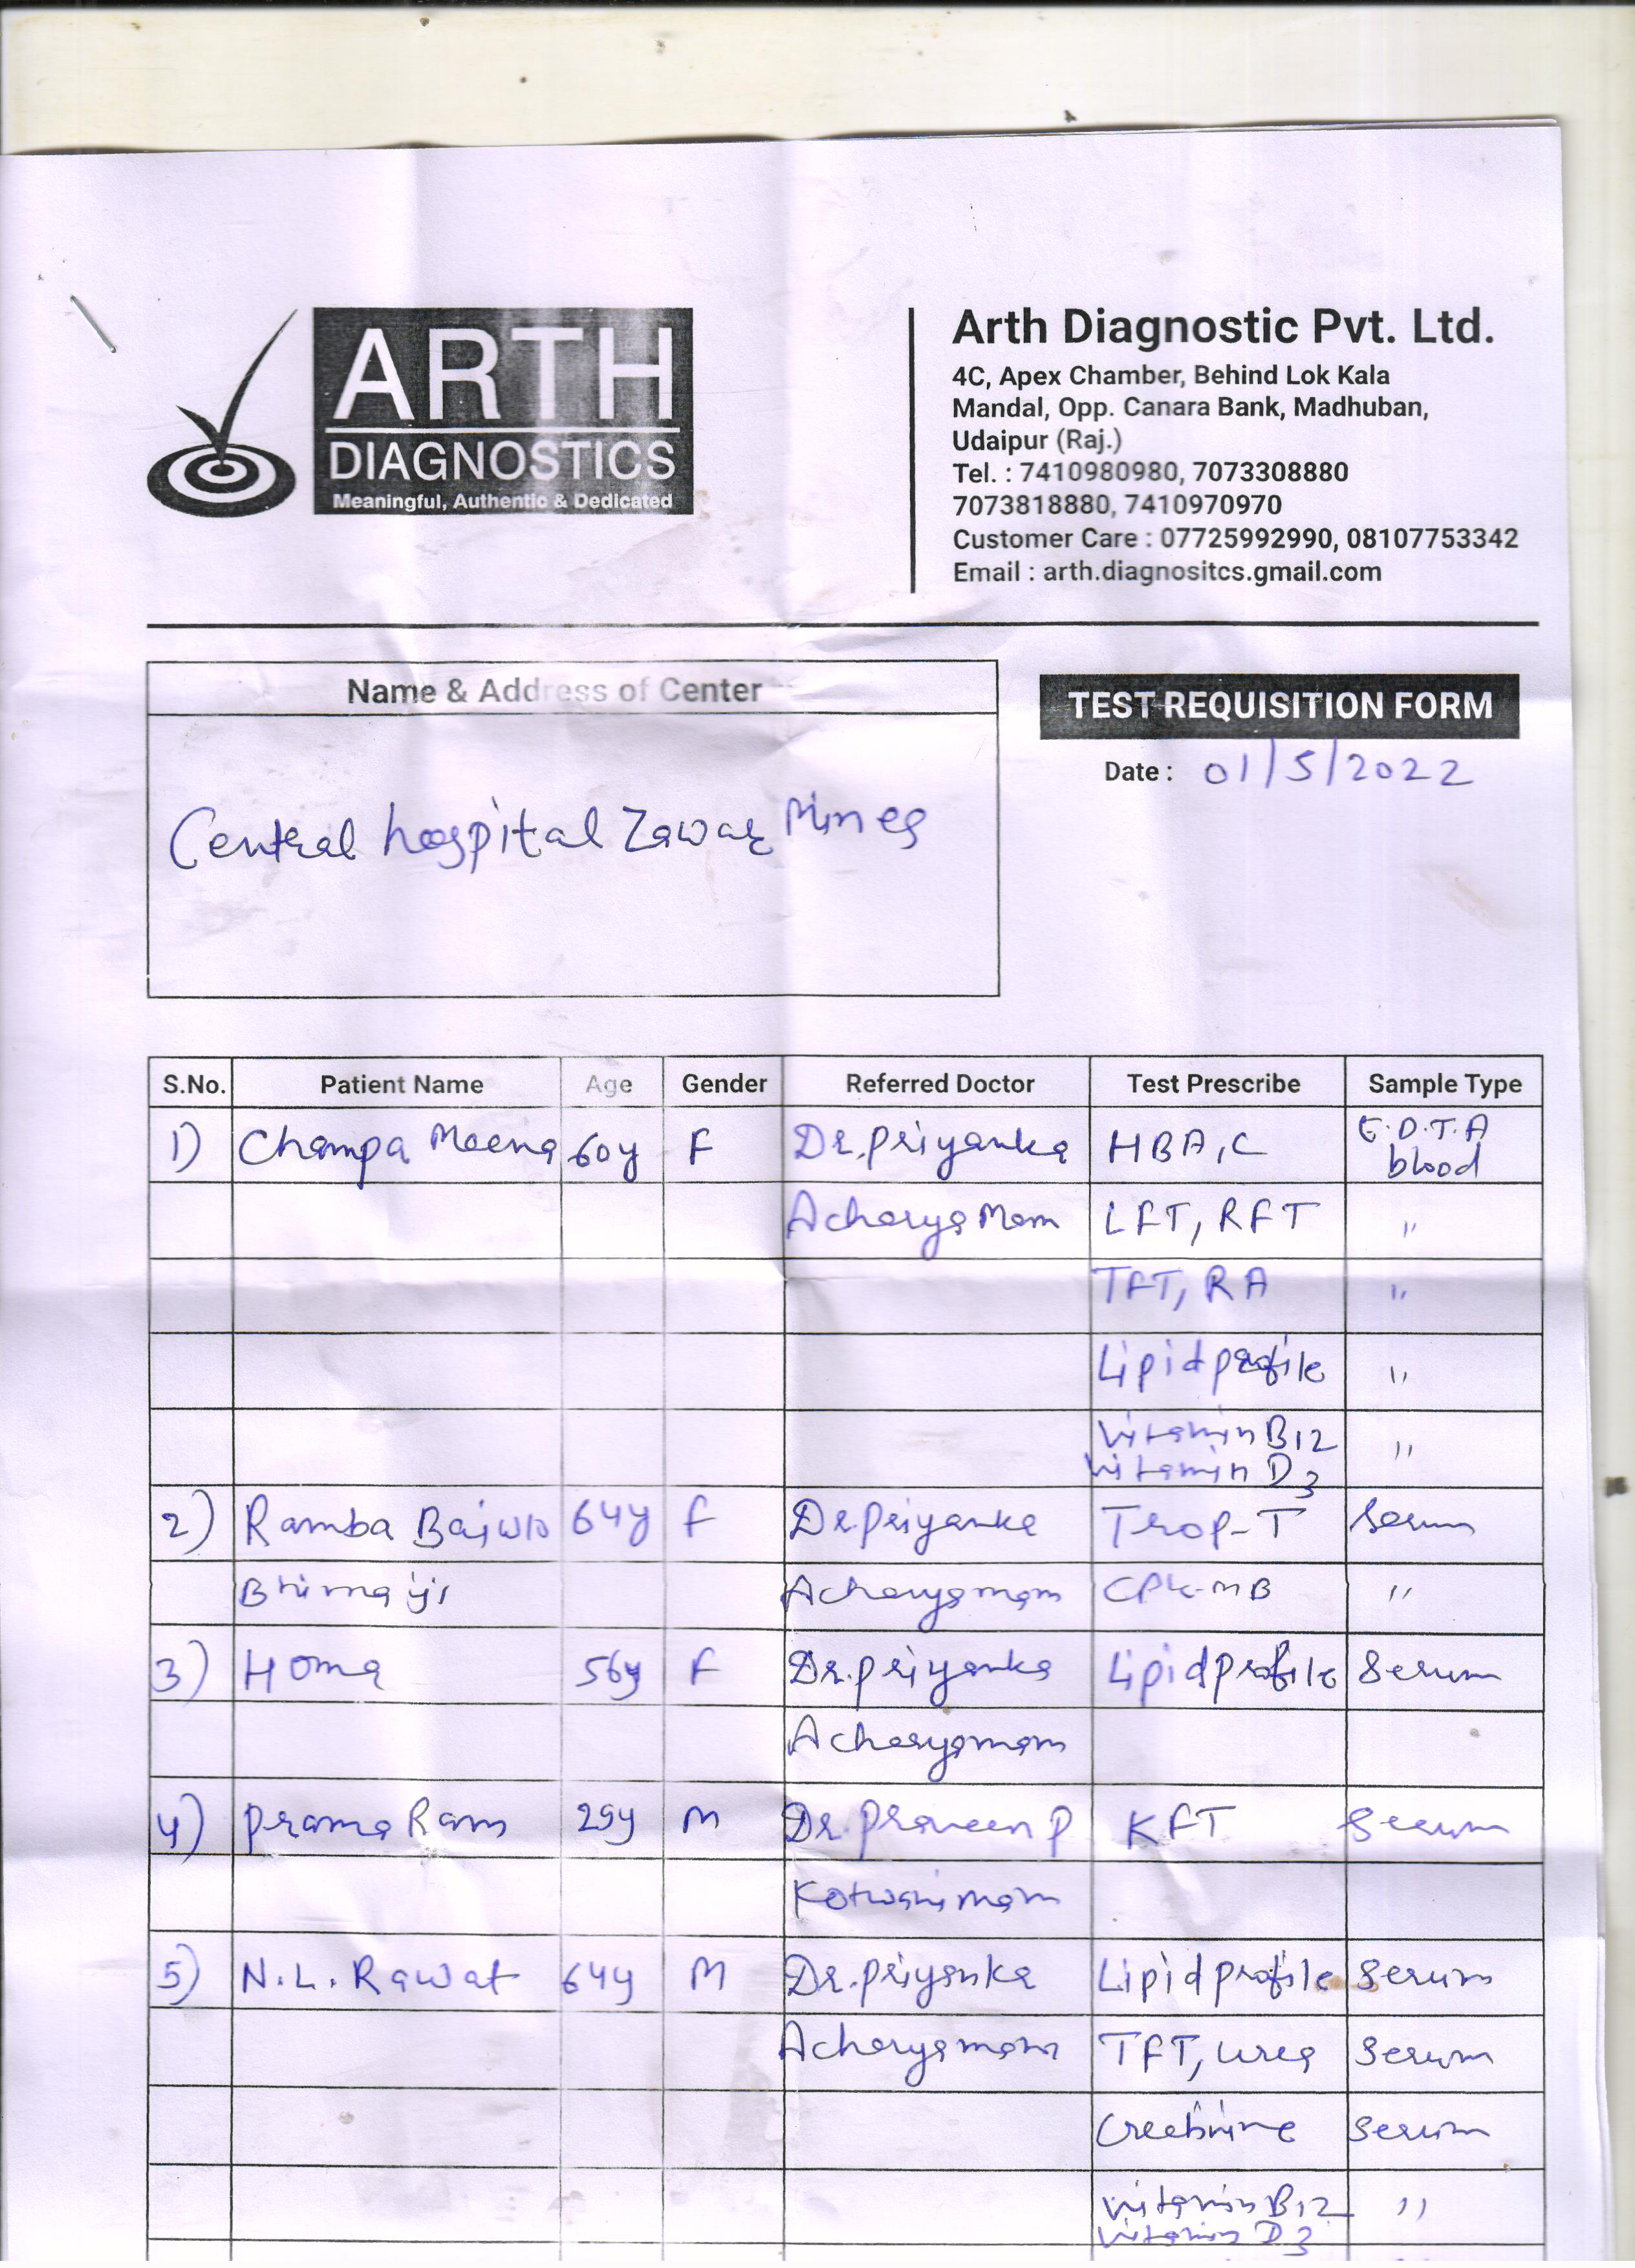 ARTH
DIAGNOSTICS
Meaningful, Authentic & Dedicated
Arth Diagnostic Pvt. Ltd.
4C, Apex Chamber, Behind Lok Kala
Mandal, Opp. Canara Bank, Madhuban,
Udaipur (Raj.)
Tel. : 7410980980, 7073308880
7073818880, 7410970970
Customer Care : 07725992990, 08107753342
Email : arth.diagnositcs.gmail.com
Name & Address of Center
Central hospital Zawar Mines
TEST REQUISITION FORM
Date : 01/5/2022
S.No. Patient Name Age Gender Referred Doctor Test Prescribe Sample Type
1) Champa Meena 60y F Dr. Priyanka HBA1C E.D.T.A blood
Acharya Mam LFT, RFT "
TFT, RA "
Lipid profile "
Vitamin B12 "
Vitamin D3
2) Ramba Bai 64y F Dr. Priyanka Trop-T Serum
Acharya mam CPK-MB "
3) Homa 56y F Dr. Priyanka Lipid profile Serum
Acharya mam
4) Prama Ram 25y M Dr. Praveen P KFT Serum
Kotwani mam
5) N.L. Rawat 64y M Dr. Priyanka Lipid profile Serum
Acharya mam TFT, Urea Serum
Creetinine Serum
Vitamin B12 "
Vitamin D3